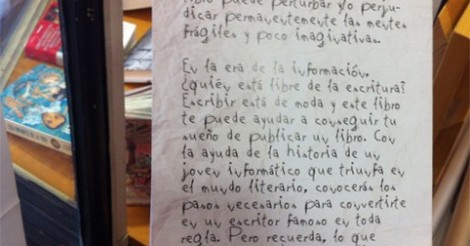 libro puede perturbar y/o perju-
dicar permanentemente las mentes
frágiles y poco imaginativas.
En la era de la información,
¿quién está libre de la escritura?
Escribir está de moda y este libro
te puede ayudar a conseguir tu
sueño de publicar un libro. Con
la ayuda de la historia de un
joven informático que triunfa en
el mundo literario, conocerás los
pasos necesarios para convertirte
en un escritor famoso en toda
regla. Pero recuerda, lo que